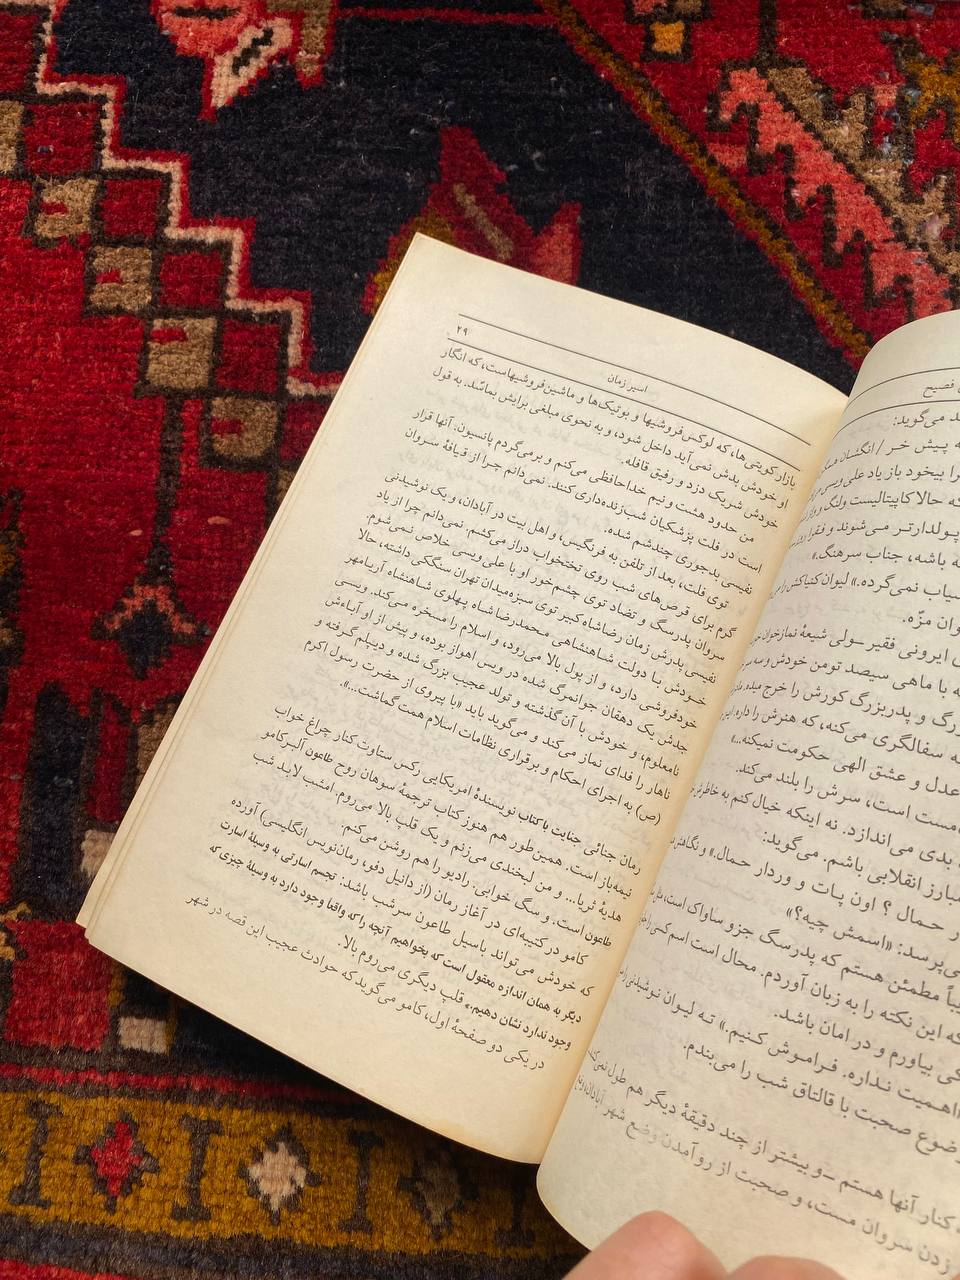 فصیح
می‌گوید:
پیش خر / انگشتان
را بیخود باز یاد علی ویسی
که حالا کاپیتالیست ولنگ و واز
پولدارتر می‌شوند و فقرا
باشه، جناب سرهنگ.»
سیاب نمی‌گرده.» لیوان کنیاکش را
مزّه.
ایرونی فقیر ـ ولی شیعهٔ نمازخوان
با ماهی سیصد تومن خودش و سه
و پدربزرگ کورش را خرج میده.
سفالگری می‌کنه، که هنرش را داره.
عدل و عشق الهی حکومت نمیکنه...»
مست است، سرش را بلند می‌کند.
بدی می‌اندازد. نه اینکه خیال کنم به خاطر
مبارز انقلابی باشم. می‌گوید:
حمال؟ اون پات و وردار حمال.» و نگاه
می‌پرسد: «اسمش چیه؟»
مطمئن هستم که پدرسگ جزو ساواک است،
که این نکته را به زبان آوردم. محال است اسم کسی را
بیاورم و در امان باشد.
اهمیت نداره. فراموش کنیم.» ته لیوان نوشیدنی
موضوع صحبت با قالتاق شب را می‌بندم.
کنار آنها هستم ـ و بیشتر از چند دقیقهٔ دیگر هم طول نمی‌کشد
زدن سروان مست، و صحبت از رو آمدن وضع شهر آبادان،
اسیر زمان ۲۹
بازار کویتی‌ها، که لوکس‌فروشیها و بوتیک‌ها و ماشین‌فروشیهاست، که انگار
او خودش بدش نمی‌آید داخل شود، و به نحوی مبلغی برایش بماسّد. به قول
خودش شریک دزد و رفیق قافله.
من حدود هشت و نیم خداحافظی می‌کنم و برمی‌گردم پانسیون. آنها قرار
است در فلت پزشکیان شب‌زنده‌داری کنند. نمی‌دانم چرا از قیافهٔ سروان
نفیسی بدجوری چندشم شده.
توی فلت، بعد از تلفن به فرنگیس، و اهل بیت در آبادان، و یک نوشیدنی
گرم برای قرص‌های شب روی تختخواب دراز می‌کشم. نمی‌دانم چرا از یاد
سروان پدرسگ و تضاد توی چشم‌خور او با علی ویسی خلاص نمی‌شوم.
نفیسی پدرش زمان رضاشاه کبیر توی سبزه‌میدان تهران سنگکی داشته، حالا
خودش با دولت شاهنشاهی محمدرضاشاه پهلوی شاهنشاه آریامهر
خودفروشی دارد، و از پول بالا می‌رود، و اسلام را مسخره می‌کند. ویسی
جدش یک دهقان جوانمرگ شده در ویس اهواز بوده، و پیش از او آباءش
نامعلوم، و خودش با آن گذشته و تولد عجیب بزرگ شده و دیپلم گرفته و
ناهار را فدای نماز می‌کند و می‌گوید باید «با پیروی از حضرت رسول اکرم
(ص) به اجرای احکام و برقراری نظامات اسلام همت گماشت...».
رمان جنائی جنایت با کتاب نویسندهٔ امریکایی رکس ستاوت کنار چراغ خواب
نیمه‌باز است. همین طور هم هنوز کتاب ترجمهٔ سوهان روح طاعون آلبر کامو
هدیهٔ ثریا... و من لبخندی می‌زنم و یک قلپ بالا می‌روم. امشب لابد شب
طاعون است، و سگ خوابی. رادیو را هم روشن می‌کنم.
کامو در کتیبه‌ای در آغاز رمان (از دانیل دفو، رمان‌نویس انگلیسی) آورده
که خودش می‌تواند باسیل طاعون سرشب باشد: تجسم اسارتی به وسیلهٔ اسارت
دیگر به همان اندازه معقول است که بخواهیم آنچه را که واقعا وجود دارد به وسیلهٔ چیزی که
وجود ندارد نشان دهیم.» قلپ دیگری می‌روم بالا.
در یکی دو صفحهٔ اول، کامو می‌گوید که حوادث عجیب این قصه در شهر